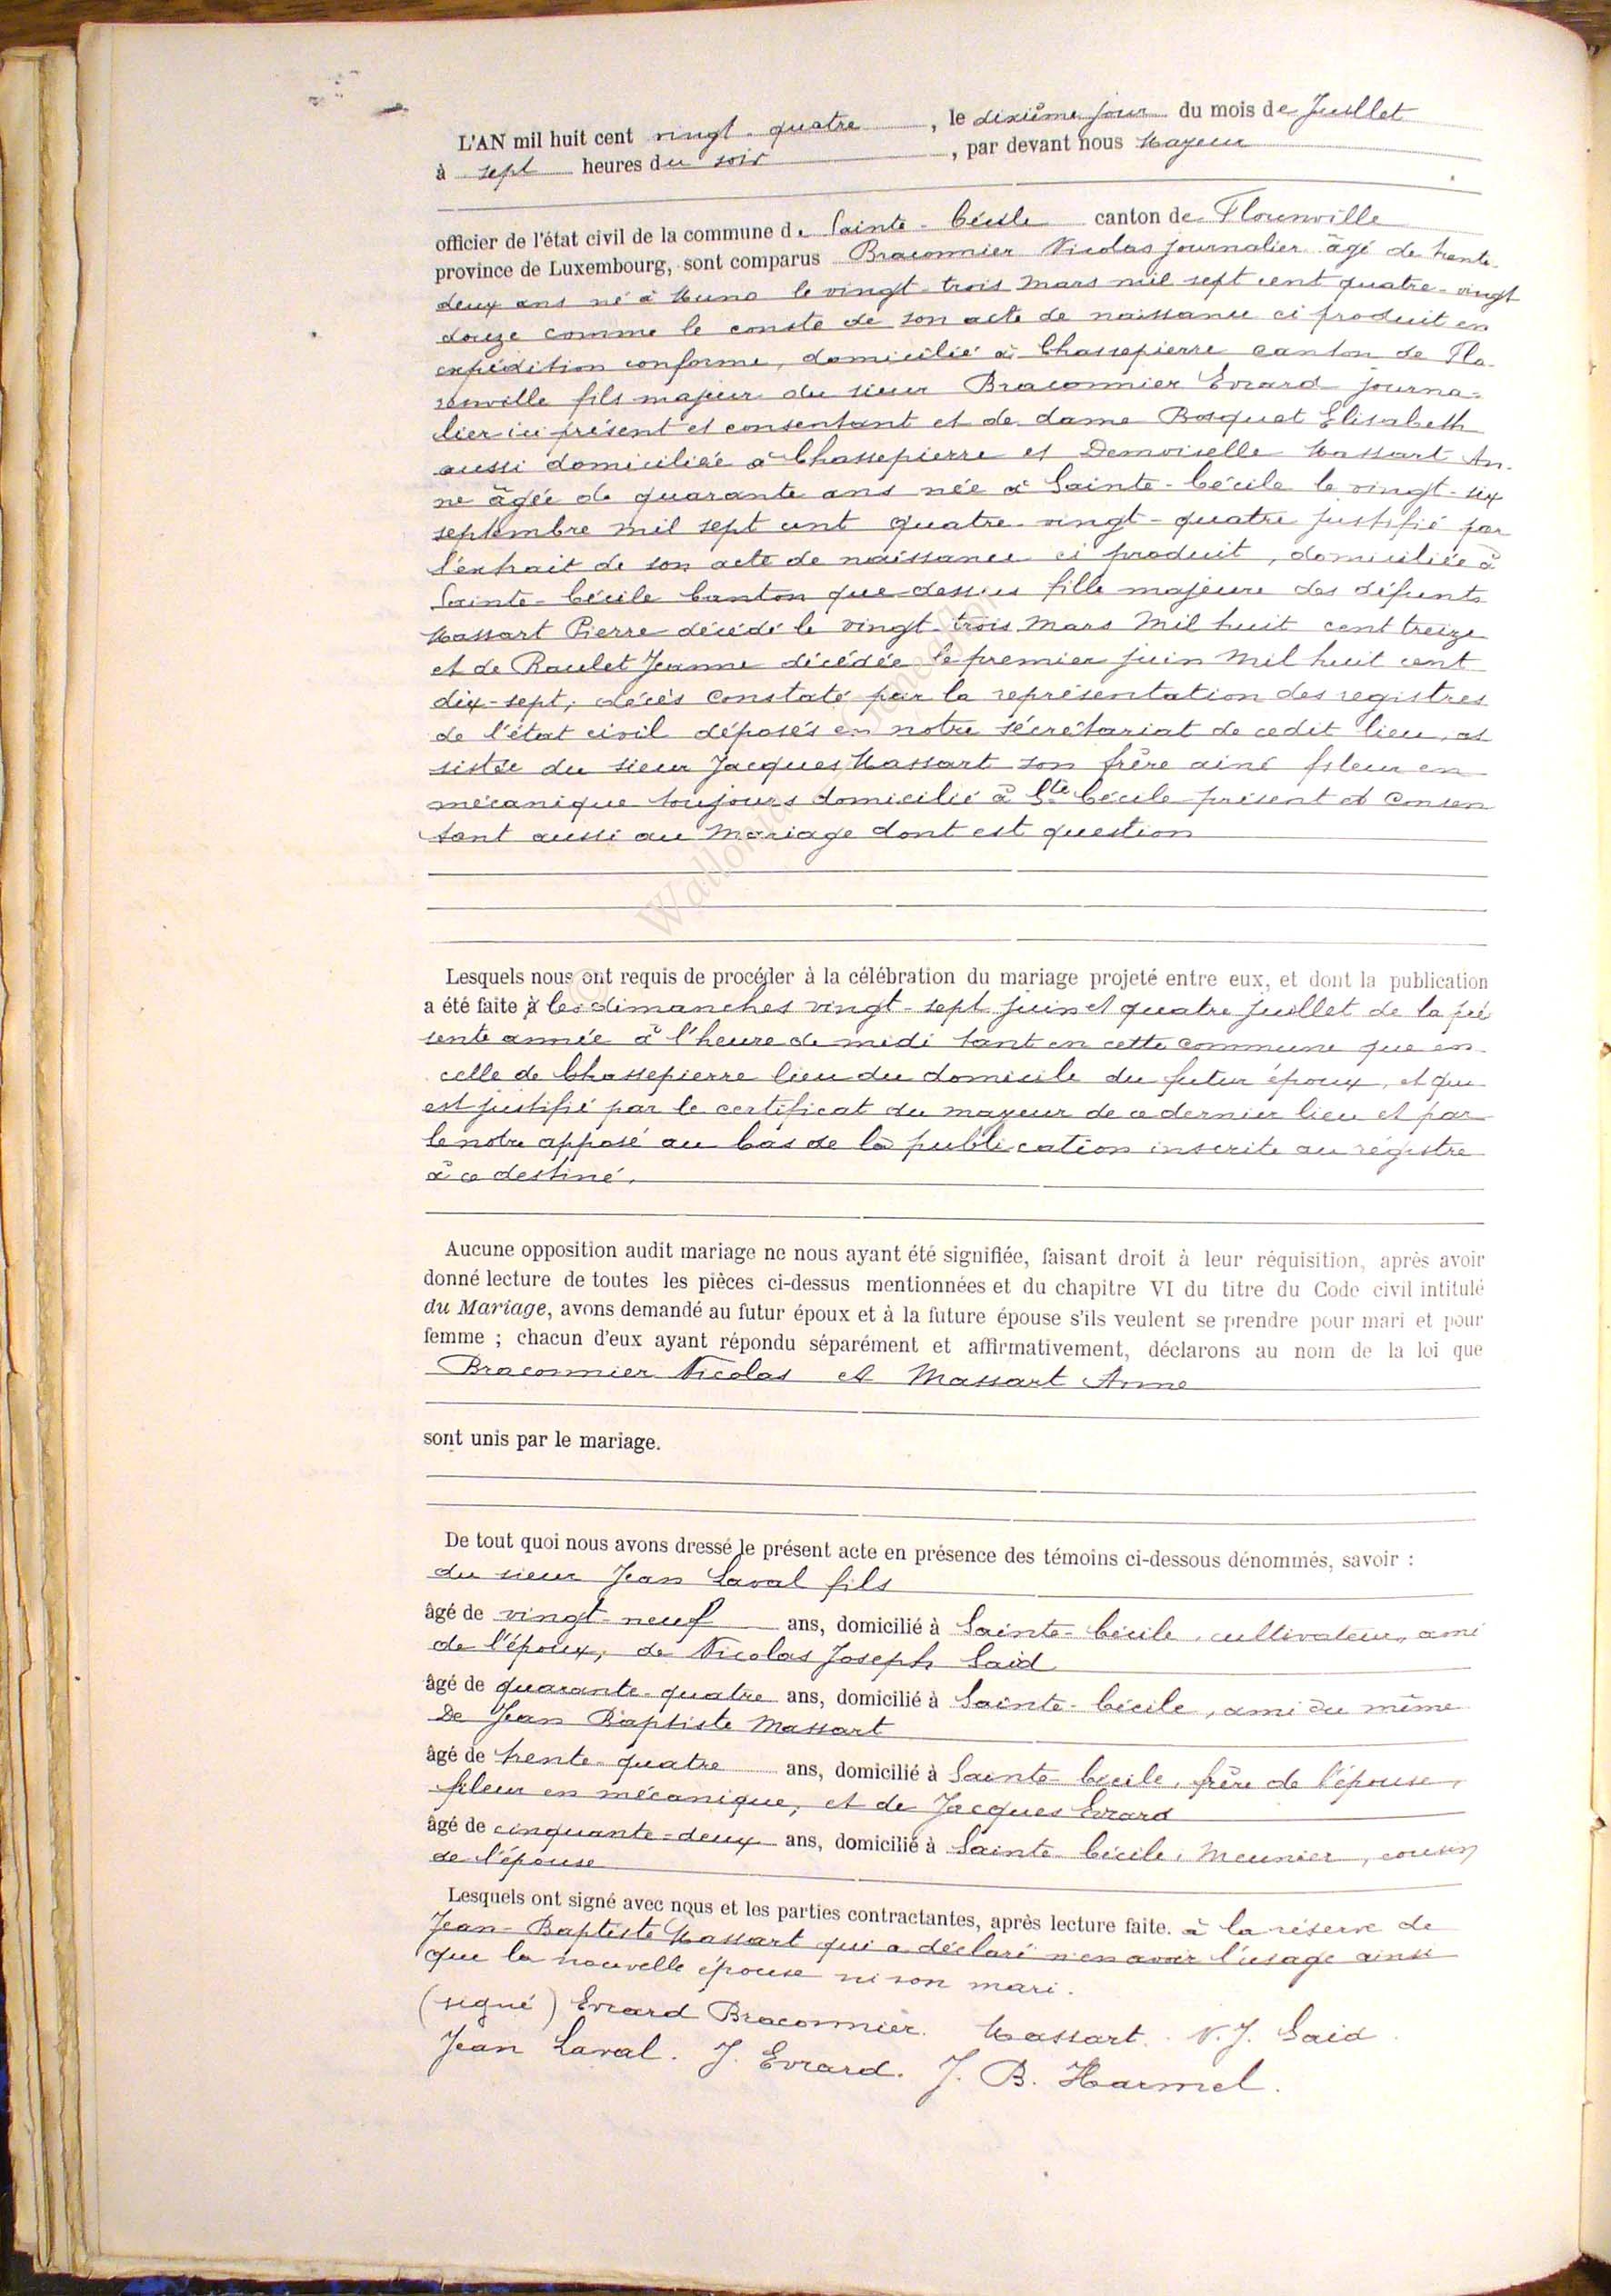 L'AN mil huit cent vingt-quatre, le dixième jour du mois de Juillet
à sept heures du soir, par devant nous Mayeur
officier de l'état civil de la commune de Sainte-Cécile canton de Florenville
province de Luxembourg, sont comparus Braconnier Nicolas journalier âgé de trente-
deux ans né à Muno le vingt-trois Mars mil sept cent quatre-vingt
douze comme le conste de son acte de naissance ci produit en
expédition conforme, domicilié à Chassepierre canton de Flo-
renville fils majeur du sieur Braconnier Evrard journa-
lier ici présent et consentant et de dame Bosquet Elisabeth
aussi domiciliée à Chassepierre et Demoiselle Massart An-
ne âgée de quarante ans née à Sainte-Cécile le vingt-six
septembre mil sept cent quatre-vingt-quatre justifié par
l'extrait de son acte de naissance ci produit, domiciliée à
Sainte-Cécile Canton que dessus fille majeure des défunts
Massart Pierre décédé le vingt-trois Mars Mil huit cent treize
et de Raulet Jeanne décédée le premier juin Mil huit cent
dix-sept, décès constaté par la représentation des registres
de l'état civil déposés en notre sécrétariat de cedit lieu, as
sistée du sieur Jacques Massart son frère ainé fileur en
mécanique toujours domicilié à Ste Cécile présent et consen
tant aussi au Mariage dont est question
Lesquels nous ont requis de procéder à la célébration du mariage projeté entre eux, et dont la publication
a été faite à les dimanches vingt-sept juin et quatre juillet de la pré
sente année à l'heure de midi tant en cette commune que en
celle de Chassepierre lieu du domicile du futur époux, et que
est justifié par le certificat du mayeur de ce dernier lieu et par
le notre apposé au bas de la publication inscrite au régistre
à ce destiné.
Aucune opposition audit mariage ne nous ayant été signifiée, faisant droit à leur réquisition, après avoir
donné lecture de toutes les pièces ci-dessus mentionnées et du chapitre VI du titre du Code civil intitulé
du Mariage, avons demandé au futur époux et à la future épouse s'ils veulent se prendre pour mari et pour
femme ; chacun d'eux ayant répondu séparément et affirmativement, déclarons au nom de la loi que
Braconnier Nicolas et Massart Anne
sont unis par le mariage.
De tout quoi nous avons dressé le présent acte en présence des témoins ci-dessous dénommés, savoir :
du sieur Jean Laval fils
âgé de vingt-neuf ans, domicilié à Sainte-Cécile, cultivateur, ami
de l'époux, de Nicolas Joseph Said
âgé de quarante-quatre ans, domicilié à Sainte-Cécile, ami du même
De Jean Baptiste Massart
âgé de trente-quatre ans, domicilié à Sainte-Cécile, frère de l'épouse,
fileur en mécanique, et de Jacques Evrard
âgé de cinquante-deux ans, domicilié à Sainte Cécile, Meunier, cousin
de l'épouse
Lesquels ont signé avec nous et les parties contractantes, après lecture faite. à la réserve de
Jean-Baptiste Massart qui a déclaré n'en avoir l'usage ainsi
que la nouvelle épouse ni son mari.
(signé) Evrard Braconnier. Massart. N. J. Said.
Jean Laval. J. Evrard. J. B. Harmel.